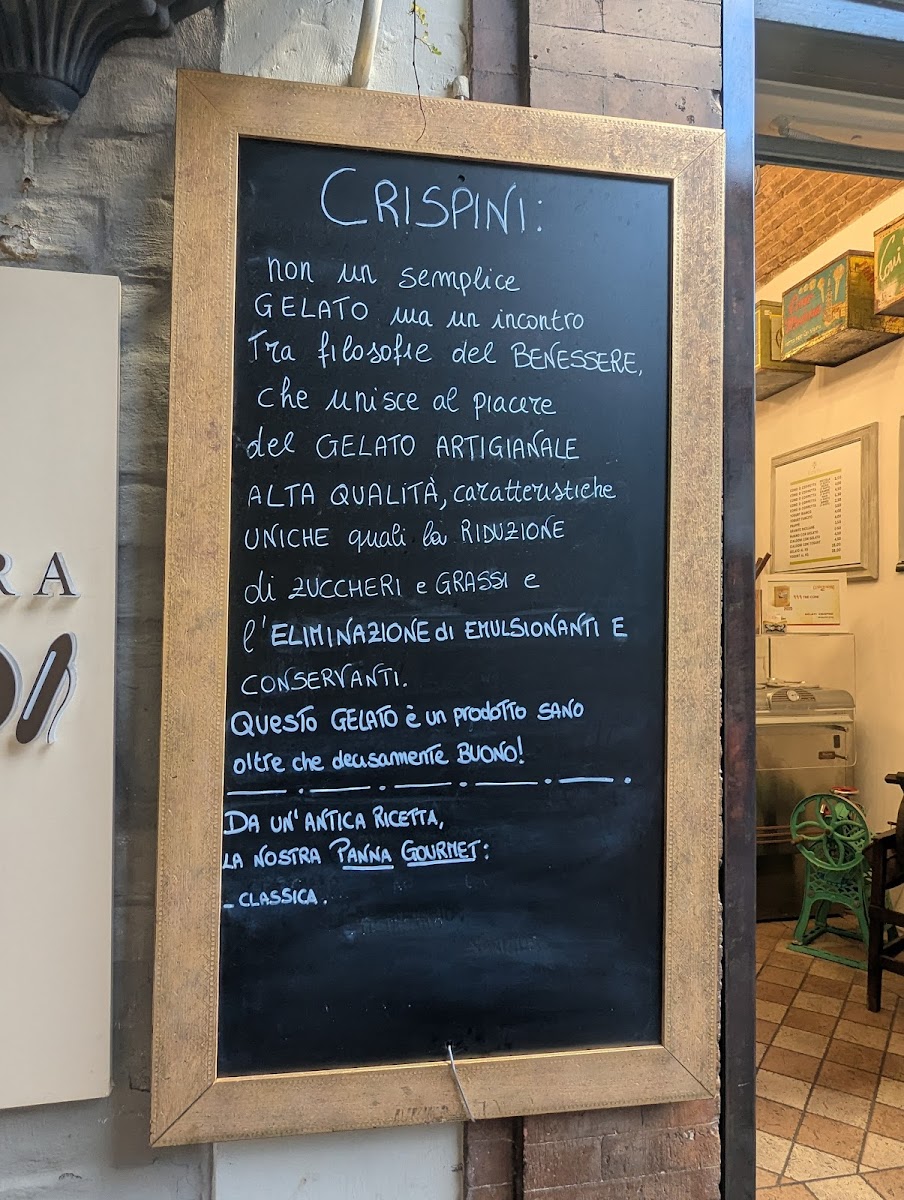 CRISPINI:
non un semplice
GELATO ma un incontro
Tra filosofie del BENESSERE,
che unisce al piacere
del GELATO ARTIGIANALE
ALTA QUALITÀ, caratteristiche
UNICHE quali la RIDUZIONE
di ZUCCHERI e GRASSI e
l'ELIMINAZIONE di EMULSIONANTI E
CONSERVANTI.
QUESTO GELATO è un prodotto SANO
oltre che decisamente BUONO!
DA UN'ANTICA RICETTA,
LA NOSTRA PANNA GOURMET:
- CLASSICA.
RA